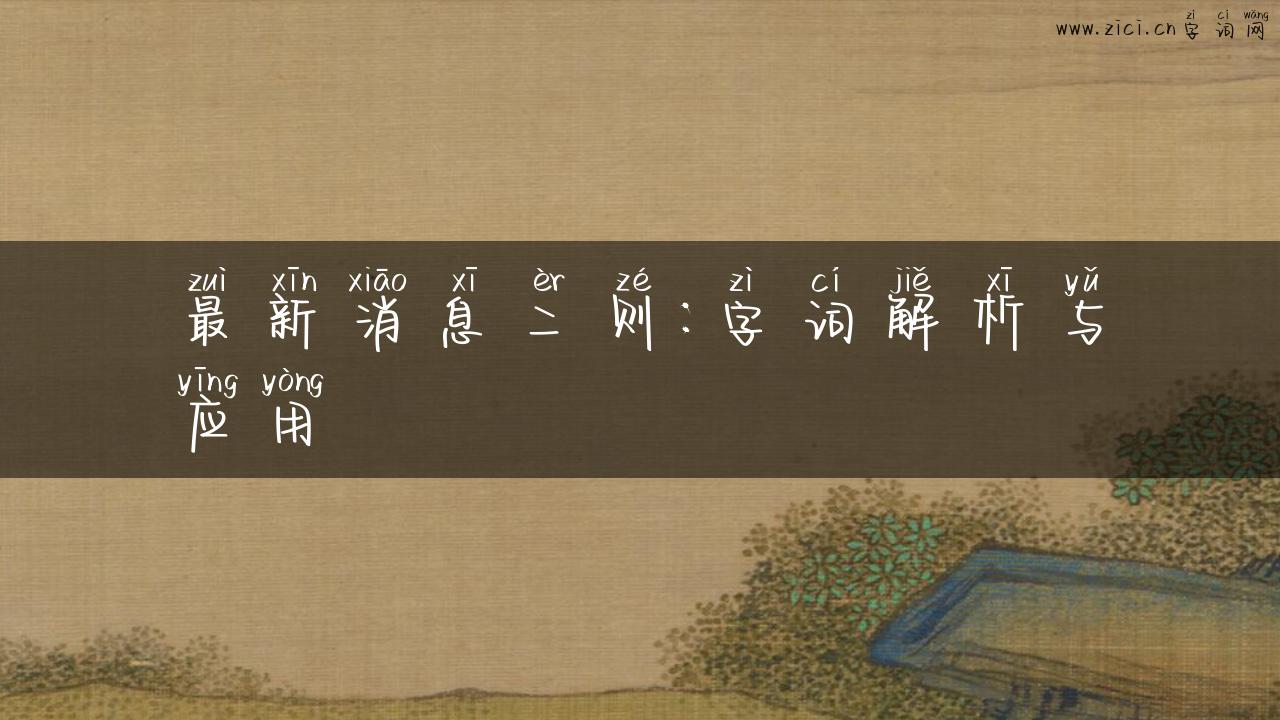 zì cí wǎng
www.zici.cn字词网
zuì xīn xiāo xī èr zé zì cí jiě xī yǔ
最新消息二则：字词解析与
yīng yòng
应用